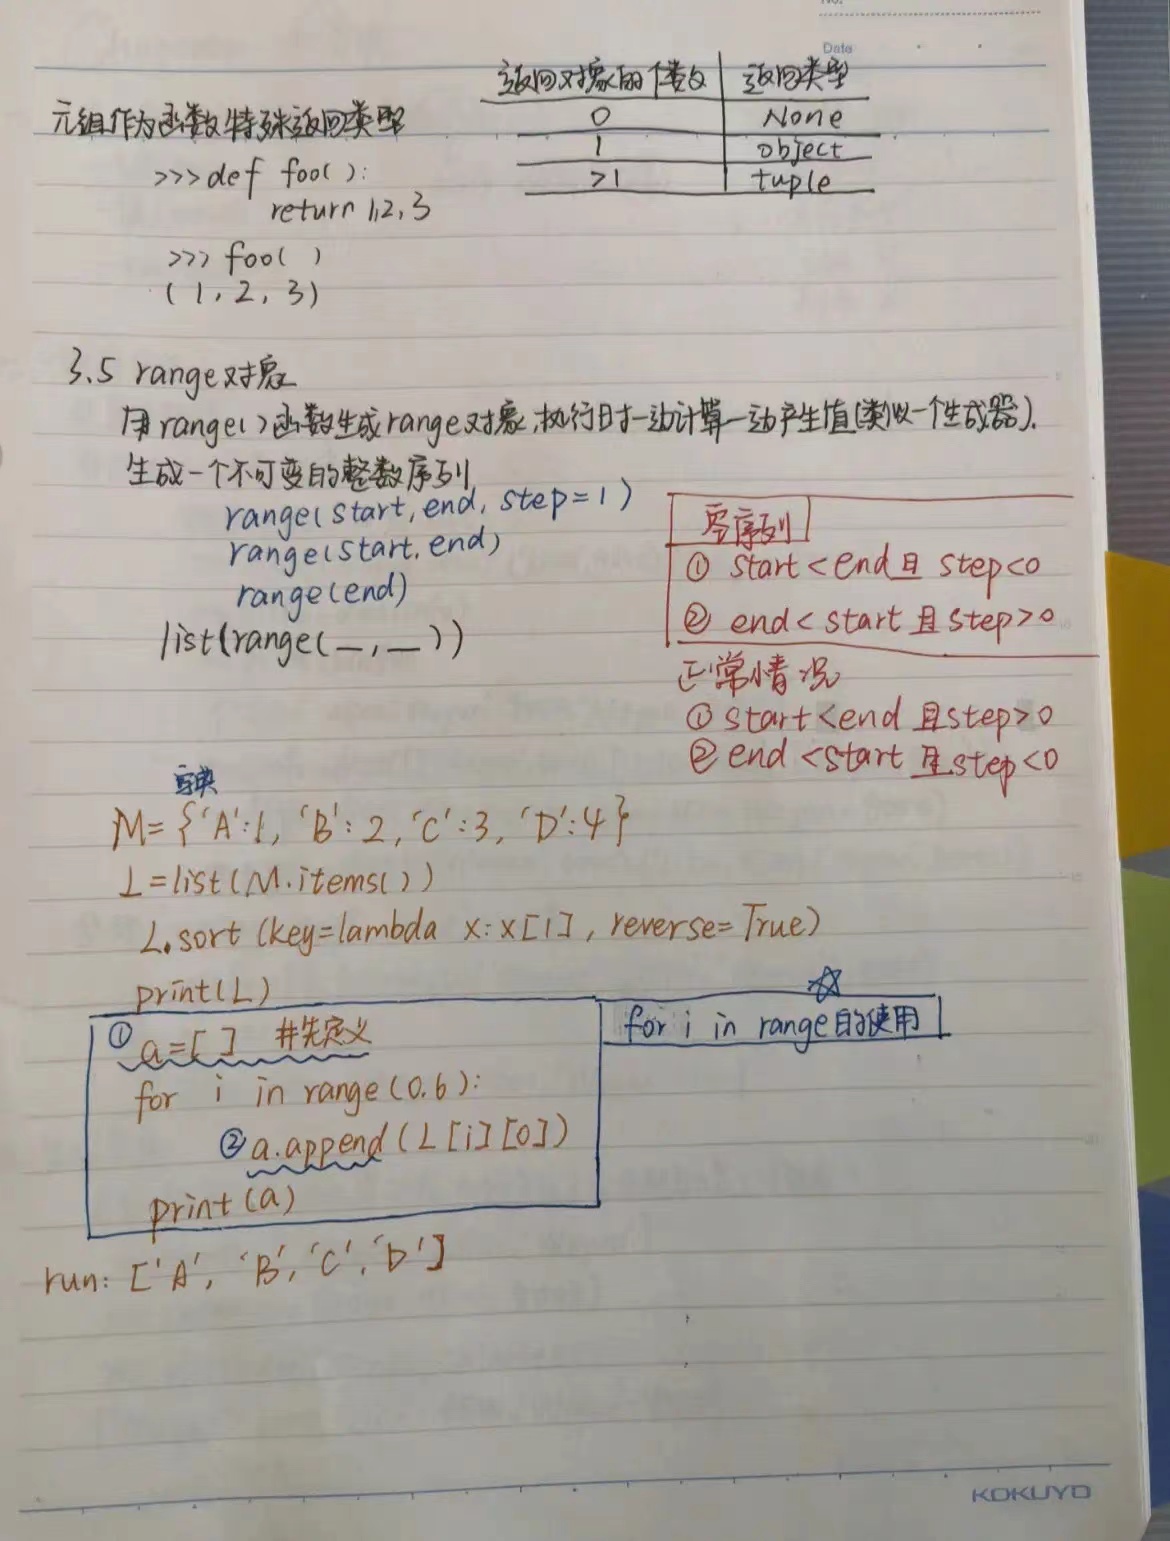 No.
Date
元组作为函数特殊返回类型
>>>def foo():
return 1,2,3
>>> foo( )
(1, 2, 3)
返回对象的个数 返回类型
0 None
1 object
>1 tuple
3.5 range对象
用range()函数生成range对象,执行时一边计算一边产生值(类似一个生成器).
生成一个不可变的整数序列
range(start,end, step=1)
range(start,end)
range(end)
list(range(_,_))
零序列
① start<end且 step<0
② end<start 且step>0
正常情况
① start<end 且step>0
② end<start 且step<0
字典
M={'A':1, 'B':2,'C':3, 'D':4}
L=list(M.items())
L.sort (key=lambda x:x[1], reverse=True)
print(L)
① a=[ ] #先定义
for i in range(0.6):
② a.append(L[i][0])
print(a)
☆
for i in range的使用
run: ['A', 'B','C','D']
KOKUYO